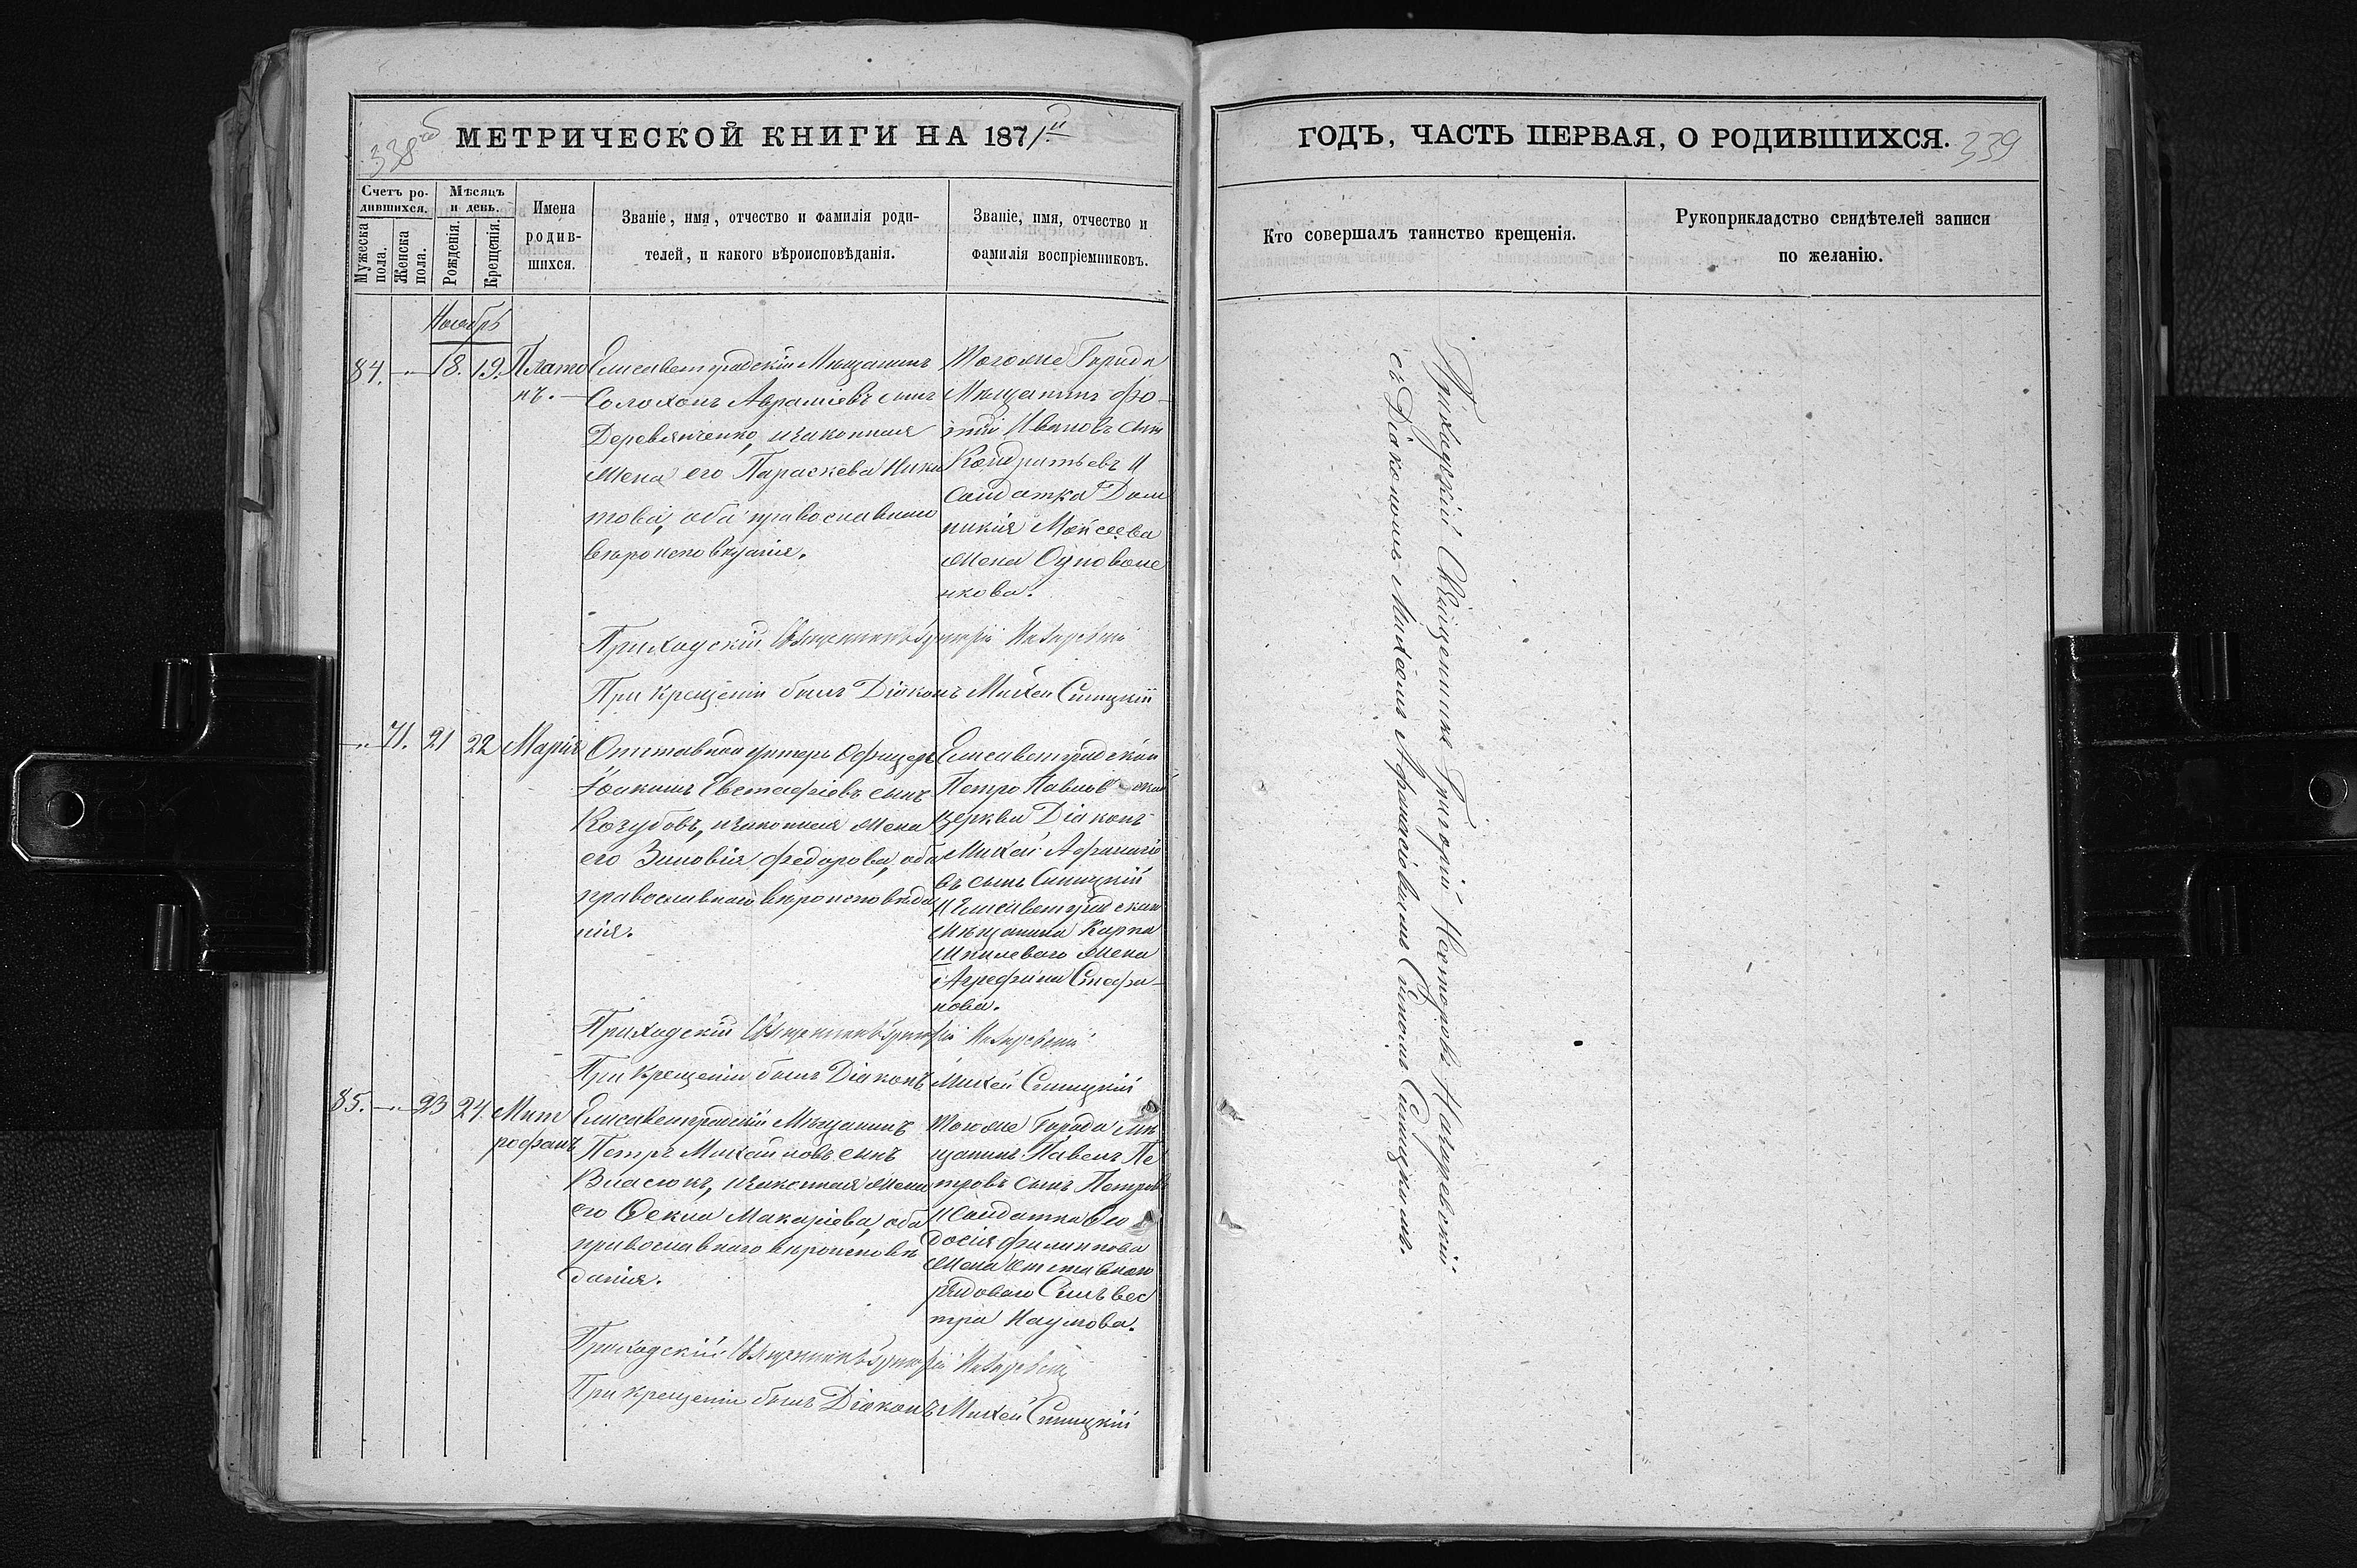 338 об
МЕТРИЧЕСКОЙ КНИГИ НА 1871й
Счетъ родившихся.
Мѣсяцъ и день.
Мужеска пола.
Женска пола.
Рожденія.
Крещенія.
Имена
родив-
шихся.
Званіе, имя, отчество и фамилія роди-
телей, и какого вѣроисповѣданія.
Званіе, имя, отчество и
фамилія воспріемниковъ.
Ноябрь
84. 18. 19. Плато
нъ.
Елисаветградскій Мѣщанинъ
Солохонъ Авраміевъ сынъ
Деревянченко, и законная
жена его Параскева Ники
това, оба православнаго
вѣроисповѣданія.
Тогоже Города
Мѣщанинъ Фо-
тій Ивановъ сынъ
Кондратьевъ и
Солдатка Дом
никія Моисеева
жена Одноволе
нкова.
Приходскій Священникъ Григорій
При крещеніи былъ Діаконъ Михей Синицкій
71. 21 22 Марія
Отставной Унтеръ Офицеръ
Іоакимъ Евстафіевъ сынъ
Кочубовъ, и законная жена
его Зиновія Федорова, оба
православнаго вѣроисповѣда
нія.
Елисаветградской
Петро Павловской
церкви Діаконъ
Михей Афанасіе
въ сынъ Синицкій
и Елисаветградскаго
Мѣщанина Карпа
жена
Агрефина Стефа-
нова.
Приходскій Священникъ Григорій
При крещеніи былъ Діаконъ Михей Синицкій
85. 23 24. Мит
рофанъ
Елисаветградскій Мѣщанинъ
Петръ Михайловъ сынъ
Власюкъ, и законная жена
его Ѳекла Макаріева, оба
православнаго вѣроисповѣ
данія.
Тогоже Города мѣ
щанинъ Павелъ Пе
тровъ сынъ Петровъ
и Солдатка Ѳео
досія Филиппова
жена отставнаго
рядоваго Сильвес
тра Наумова.
Приходскій Священникъ Григорій
При крещеніи былъ Діаконъ Михей Синицкій
ГОДЪ, ЧАСТЬ ПЕРВАЯ, О РОДИВШИХСЯ.
339
Кто совершалъ таинство крещенія.
Рукоприкладство свидѣтелей записи
по желанію.
Приходскій Священникъ Григорій Несторовъ
съ Діакономъ Михеемъ Афанасіовымъ Сыномъ Синицкимъ.